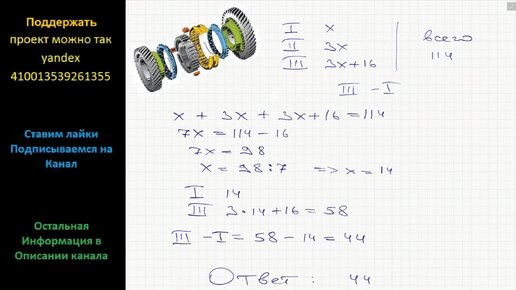 Поддержать
проект можно так
yandex
410013539261355
Ставим лайки
Подписываемся на
Канал
Остальная
Информация в
Описании канала
I x
II 3x
III 3x+16
всего
114
III - I
x + 3x + 3x+16 = 114
7x = 114 - 16
7x = 98
x = 98 : 7 => x = 14
I 14
III 3·14+16 = 58
III - I = 58 - 14 = 44
Ответ : 44